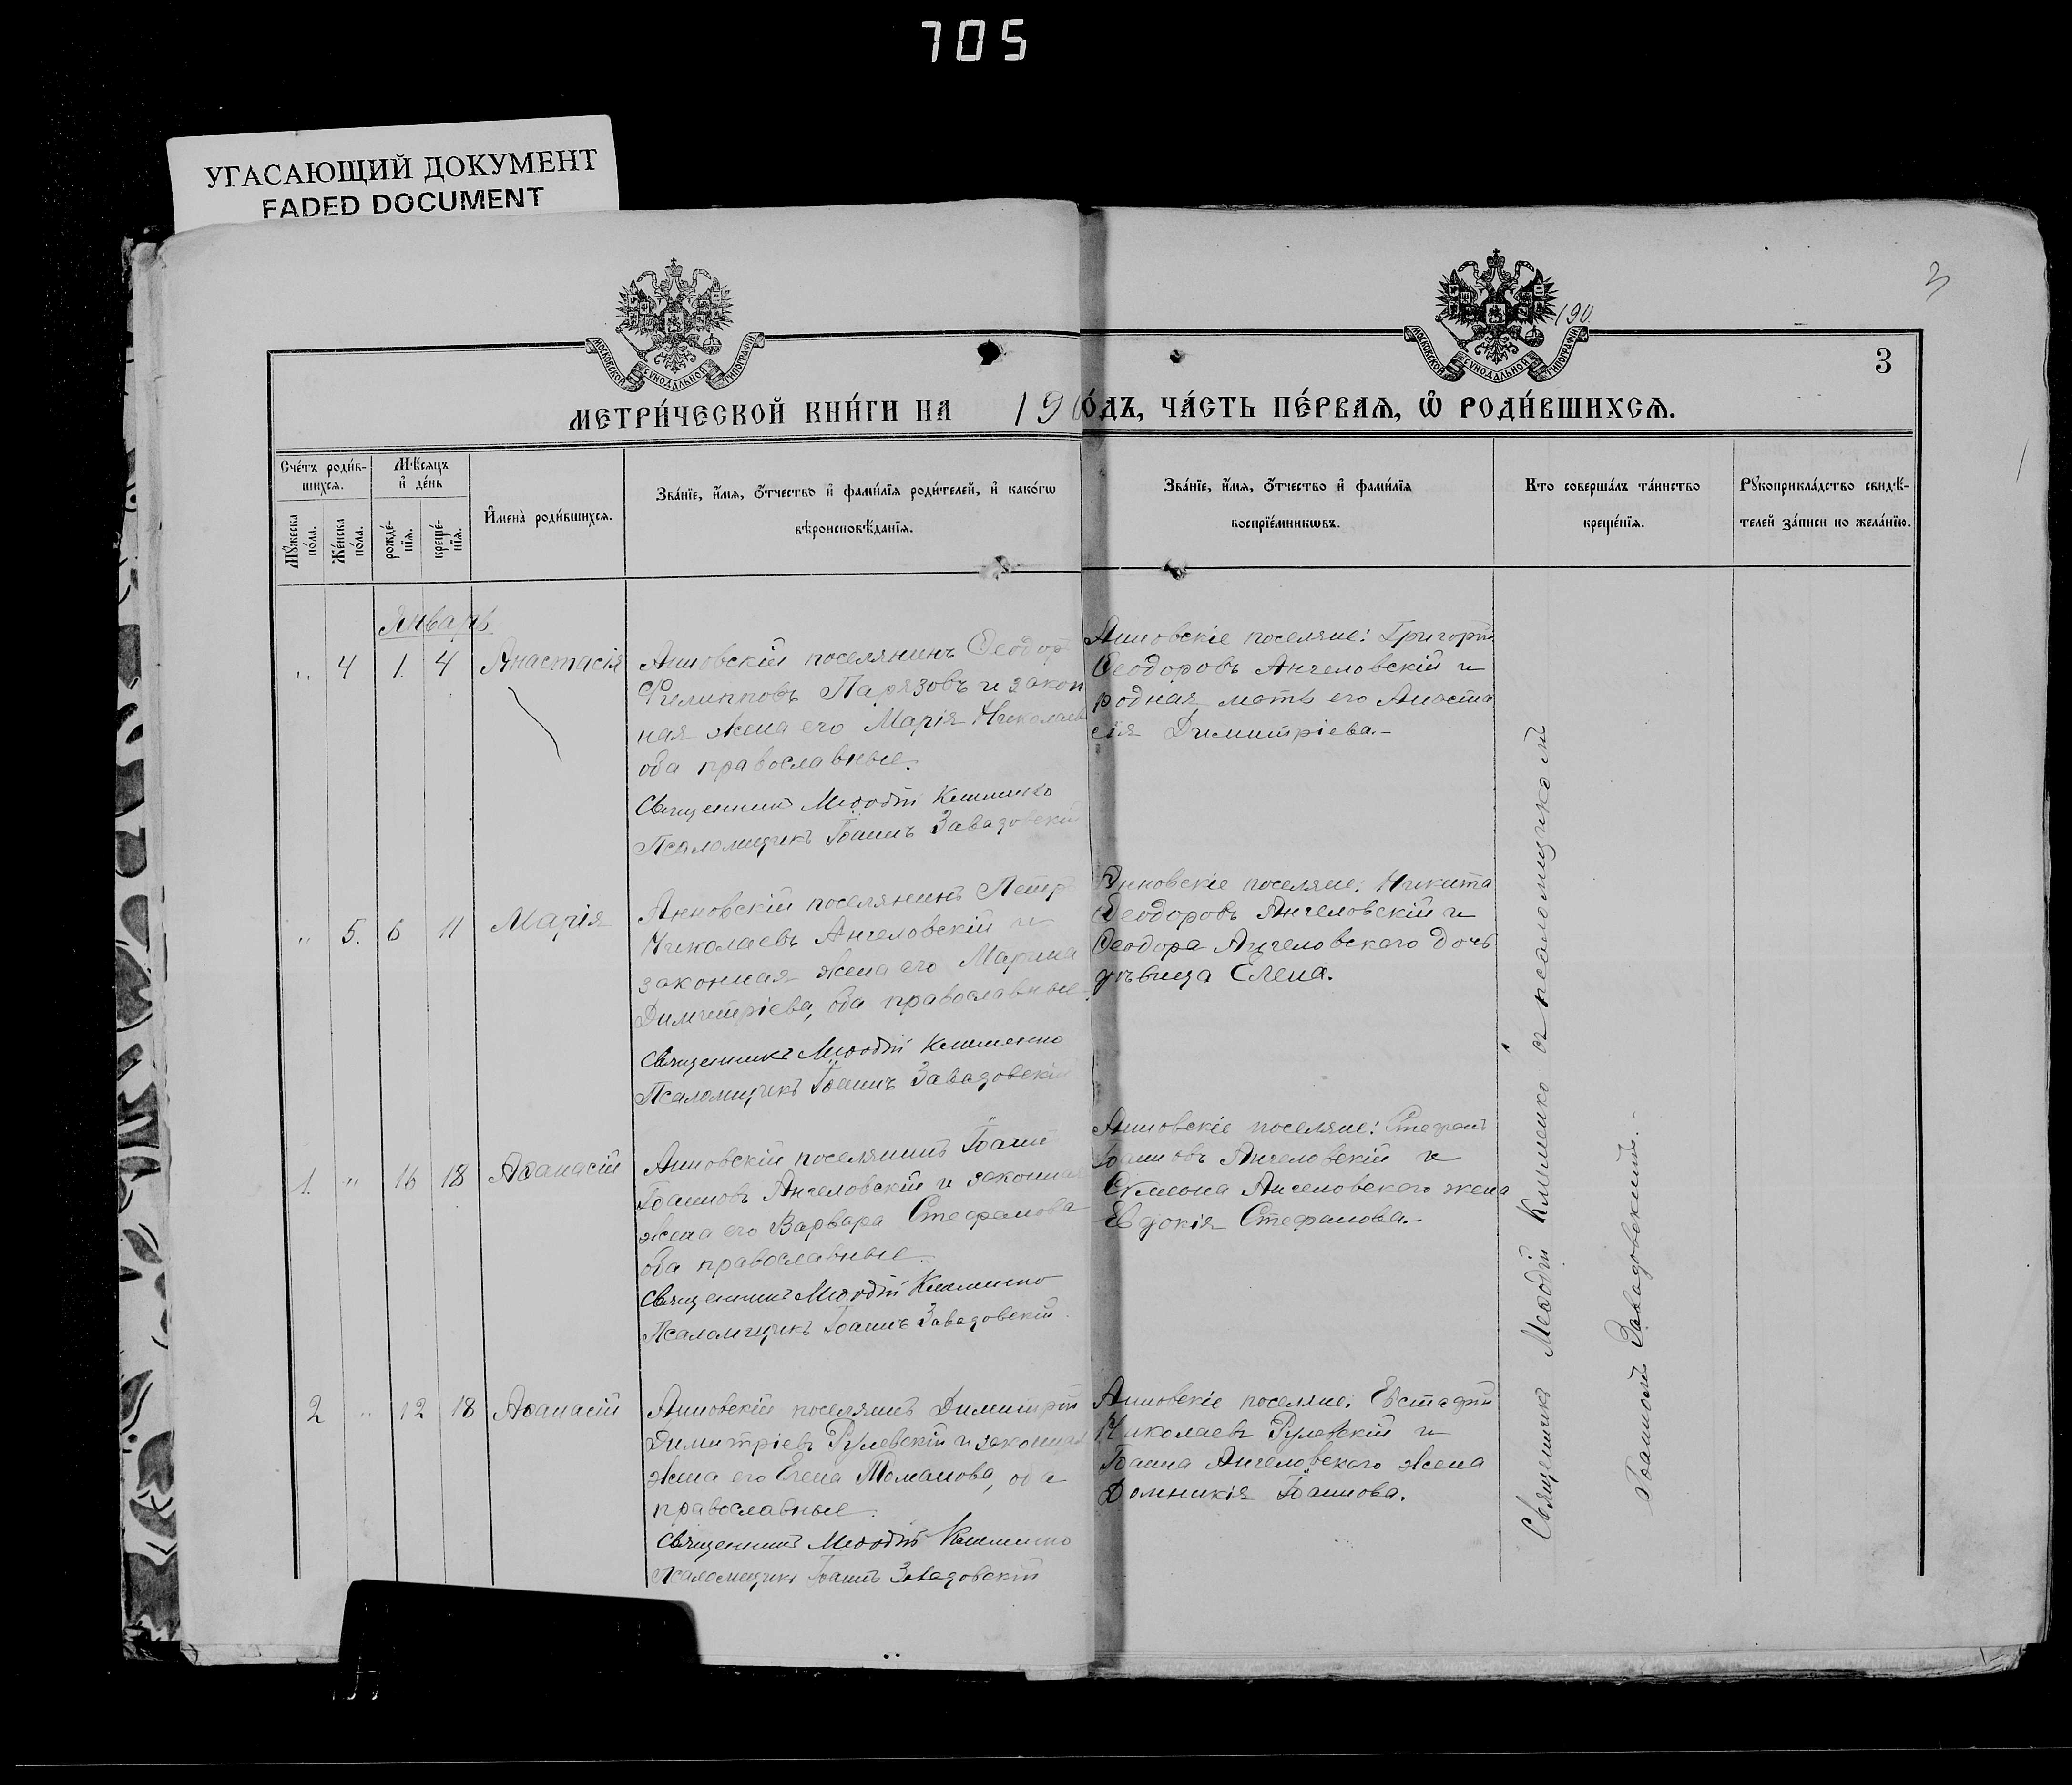 705
УГАСАЮЩИЙ ДОКУМЕНТ
FADED DOCUMENT
МОСКОВСКОЙ СѴНОДАЛЬНОЙ ТИПОГРАФІИ
МОСКОВСКОЙ СѴНОДАЛЬНОЙ ТИПОГРАФІИ
190.
3
3
МЕТРИ́ЧЕСКОЙ КНИ́ГИ НА 190
О́ДЪ, ЧА́СТЬ ПЕ́РВАѦ, Ѽ РОДИ́ВШИХСѦ.
Сче́тъ роди́в-
шихсѧ.
Мꙋ́жеска по́ла.
Же́нска по́ла.
Мѣ́сѧцъ
и҆ де́нь
рожде́-нїѧ.
креще́-нїѧ.
И҆мена̀ роди́вшихсѧ.
Зва́нїе, и҆́мѧ, ѻ҆́тчество и҆ фами́лїѧ роди́телей, и҆ како́гѡ
вѣроисповѣ́данїѧ.
Зва́нїе, и҆́мѧ, ѻ҆́тчество и҆ фами́лїѧ
воспрїе́мникѡвъ.
Кто соверша́лъ та́инство
креще́нїѧ.
Рꙋкоприкла́дство свидѣ́-
телей за́писи по жела́нїю.
Январь
" 4 1. 4 Анастасія
Анновскій поселянинъ Ѳеодор
Филипповъ Парязовъ и закон
ная жена его Марія Николаев
оба православные.
Священникъ Меѳодій Клименко
Псаломщикъ Іоаннъ Завадовскій
Анновскіе поселяне: Григорій
Ѳеодоровъ Ангеловскій и
родная мать его Анаста
сія Димитріева.-
" 5. 6 11 Марія
Анновскій поселянинъ Петръ
Николаевъ Ангеловскій и
законная жена его Марина
Димитріева, оба православные
Священникъ Меѳодій Клименко
Псаломщикъ Іоаннъ Завадовскій
Анновскіе поселяне: Никита
Ѳеодоровъ Ангеловскій и
Ѳеодора Ангеловскаго дочь
дѣвица Елена.
1. " 16 18 Аѳанасій
Анновскій поселянинъ Іоаннъ
Іоанновъ Ангеловскій и законная
жена его Варвара Стефанова
оба православные.
Священникъ Меѳодій Клименко
Псаломщикъ Іоаннъ Завадовскій.
Анновскіе поселяне: Стефанъ
Іоанновъ Ангеловскій и
Симеона Ангеловскаго жена
Евдокія Стефанова.-
2 " 12 18 Аѳанасій
Анновскій поселянинъ Димитрій
Димитріевъ Рулевскій и законная
жена его Елена Романова, оба
православные.
Священникъ Меѳодій Клименко
Псаломщикъ Іоаннъ Завадовскій
Анновскіе поселяне: Евстафій
Николаевъ Рулевскій и
Іоанна Ангеловскаго жена
Домникія Іоаннова.
Священникъ Меѳодій Клименко съ псаломщикомъ
Іоанномъ Завадовскимъ.-